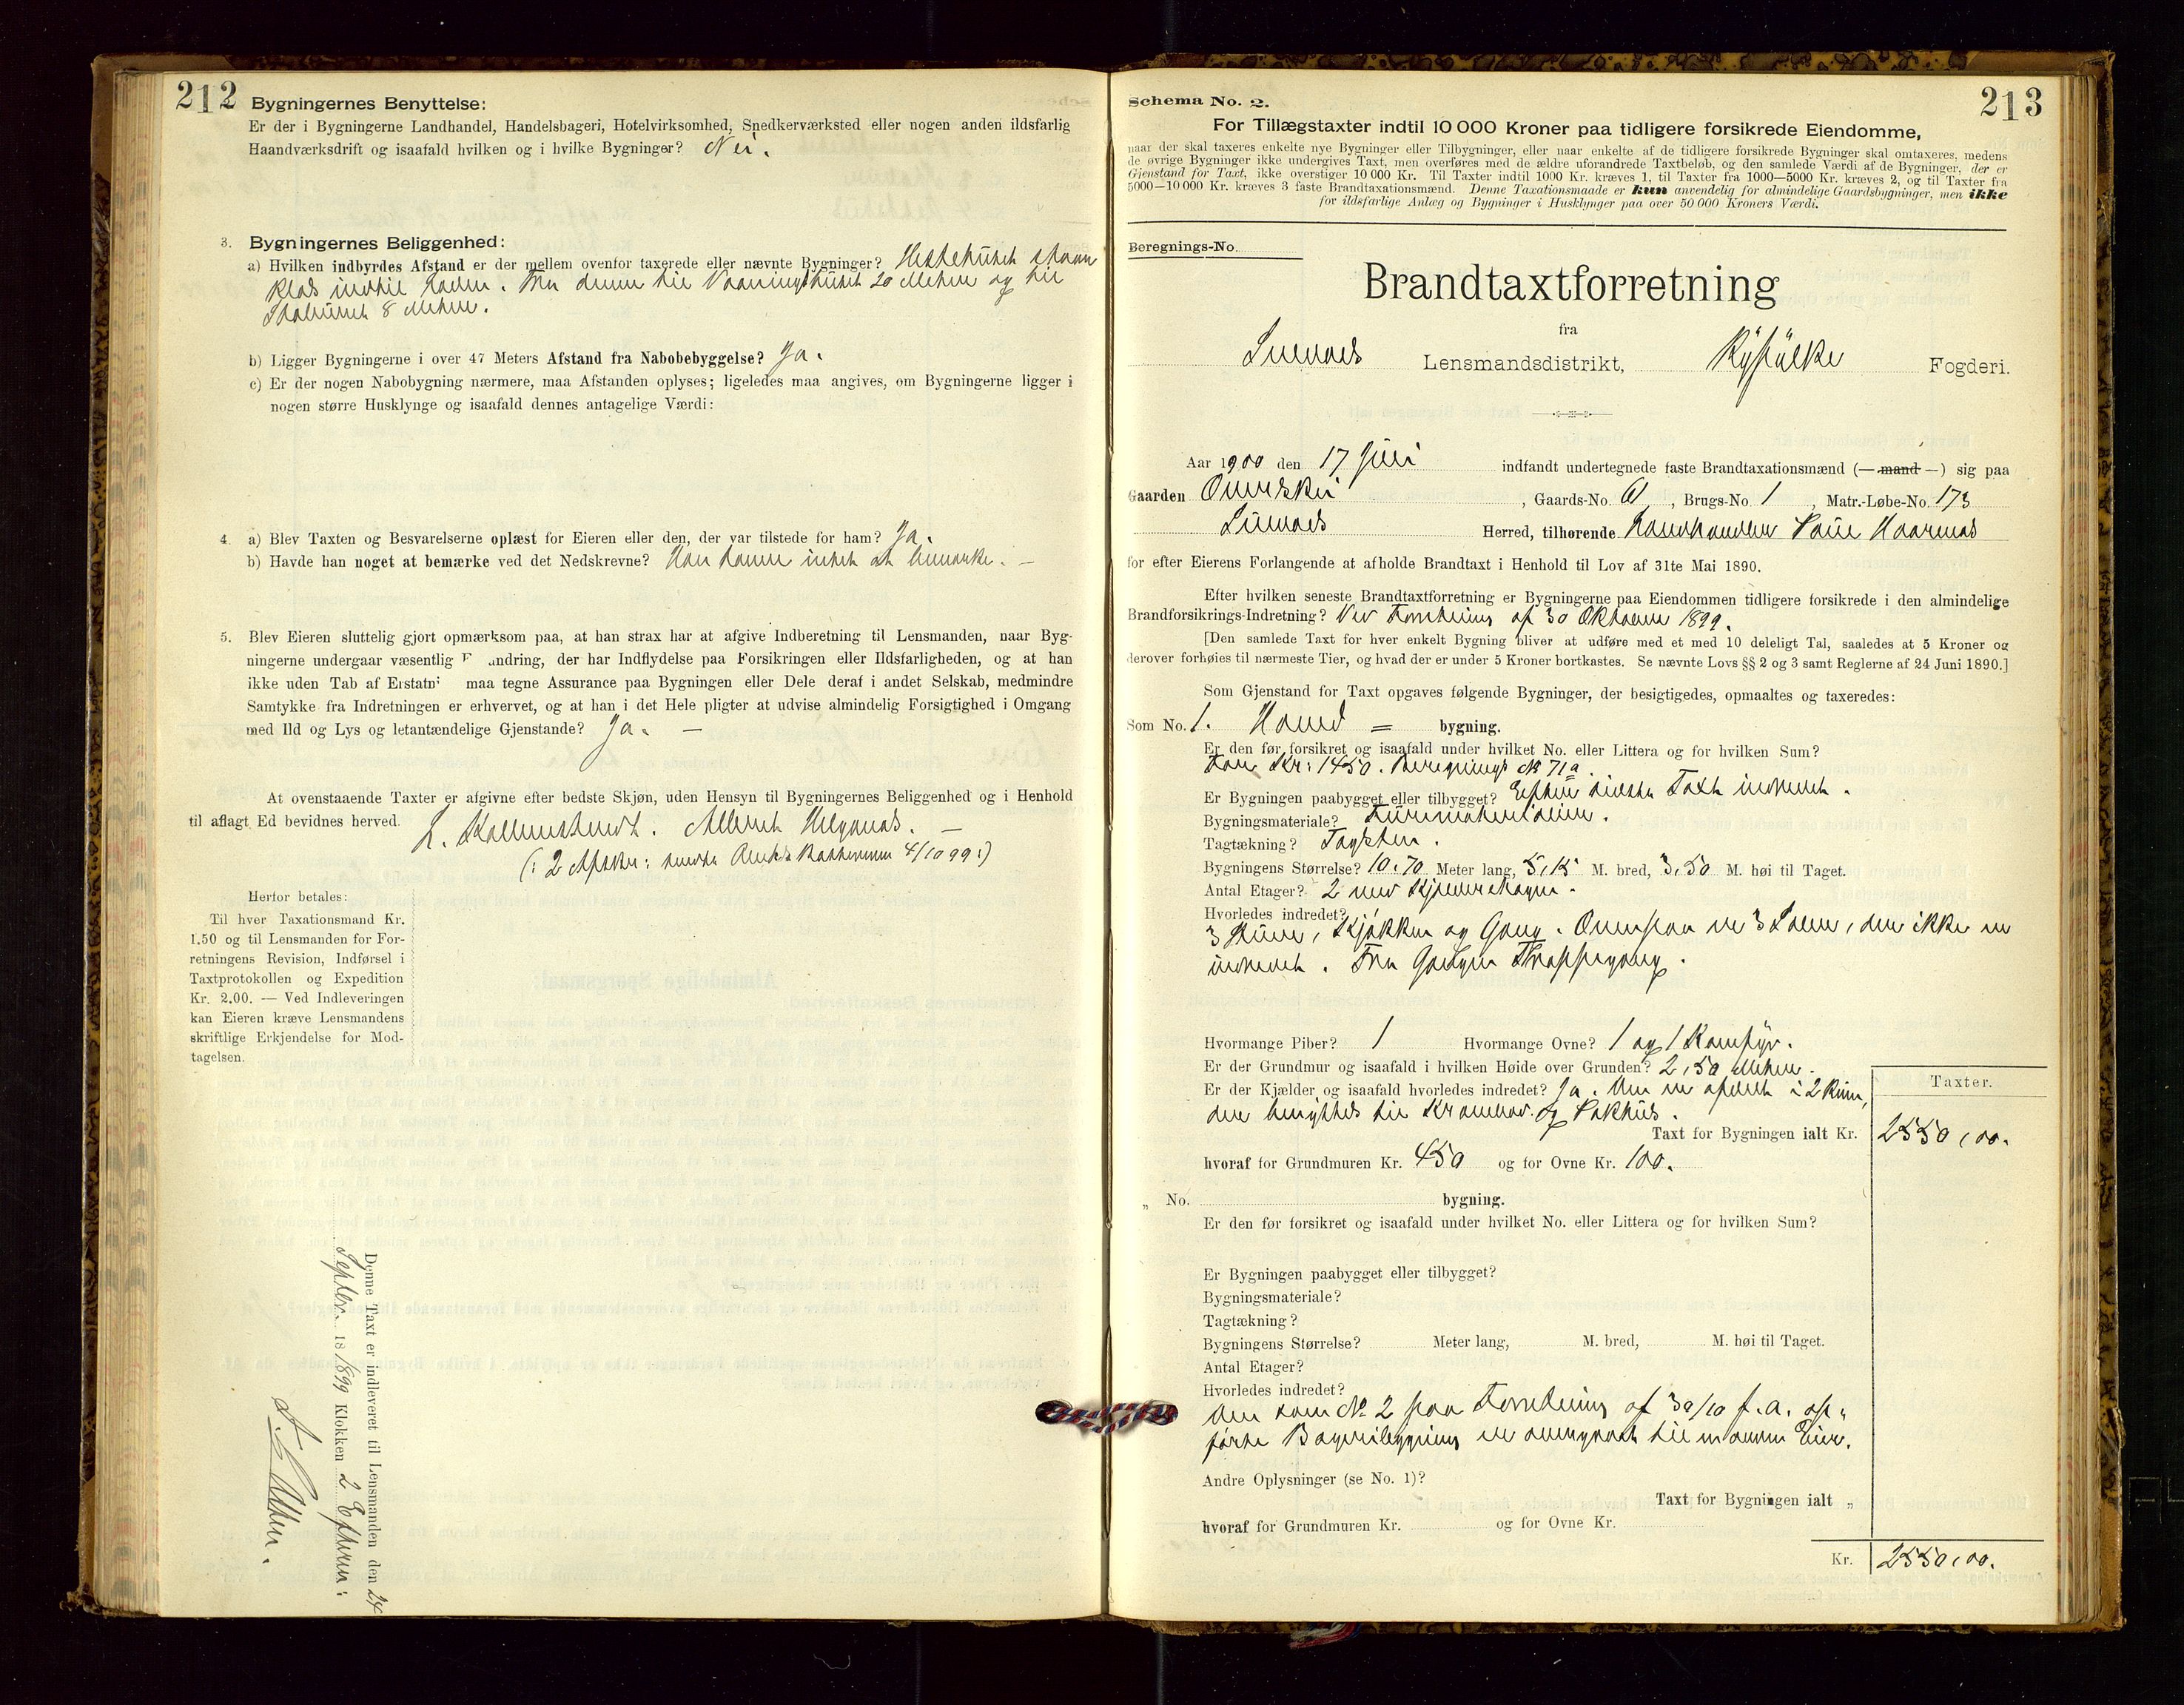 212
Bygningernes Benyttelse:
Er der i Bygningerne Landhandel, Handelsbageri, Hotelvirksomhed, Snedkerværksted eller nogen anden ildsfarlig
Haandværksdrift og isaafald hvilken og i hvilke Bygninger? Nei.
3. Bygningernes Beliggenhed:
a) Hvilken indbyrdes Afstand er der mellem ovenfor taxerede eller nævnte Bygninger? Hestehuset staar
klods indtil Laden. Fra denne til Vaaningshuset 20 Meter og til
Stabburet 8 Meter.
b) Ligger Bygningerne i over 47 Meters Afstand fra Nabobebyggelse? Ja.
c) Er der nogen Nabobygning nærmere, maa Afstanden oplyses; ligeledes maa angives, om Bygningerne ligger i
nogen større Husklynge og isaafald dennes antagelige Værdi:
4. a) Blev Taxten og Besvarelserne oplæst for Eieren eller den, der var tilstede for ham? Ja.
b) Havde han noget at bemærke ved det Nedskrevne? Han havde intet at bemærke. —
5. Blev Eieren sluttelig gjort opmærksom paa, at han strax har at afgive Indberetning til Lensmanden, naar Byg-
ningerne undergaar væsentlig F andring, der har Indflydelse paa Forsikringen eller Ildsfarligheden, og at han
ikke uden Tab af Erstatni maa tegne Assurance paa Bygningen eller Dele deraf i andet Selskab, medmindre
Samtykke fra Indretningen er erhvervet, og at han i det Hele pligter at udvise almindelig Forsigtighed i Omgang
med Ild og Lys og letantændelige Gjenstande? Ja. —
At ovenstaaende Taxter er afgivne efter bedste Skjøn, uden Hensyn til Bygningernes Beliggenhed og i Henhold
til aflagt Ed bevidnes herved.
(: 2 Afskr: sendte Amtets 4/10 99:)
Herfor betales:
Til hver Taxationsmand Kr.
1.50 og til Lensmanden for For-
retningens Revision, Indførsel i
Taxtprotokollen og Expedition
Kr. 2.00. — Ved Indleveringen
kan Eieren kræve Lensmandens
skriftlige Erkjendelse for Mod-
tagelsen.
Denne Taxt er indleveret til Lensmanden den 24
Septbr. 18 1899 Klokken 2 Efterm:
213
Schema No. 2.
For Tillægstaxter indtil 10 000 Kroner paa tidligere forsikrede Eiendomme,
naar der skal taxeres enkelte nye Bygninger eller Tilbygninger, eller naar enkelte af de tidligere forsikrede Bygninger skal omtaxeres, medens
de øvrige Bygninger ikke undergives Taxt, men overføres med de ældre uforandrede Taxtbeløb, og den samlede Værdi af de Bygninger, der er
Gjenstand for Taxt, ikke overstiger 10 000 Kr. Til Taxter indtil 1000 Kr. kræves 1, til Taxter fra 1000—5000 Kr. kræves 2, og til Taxter fra
5000—10 000 Kr. kræves 3 faste Brandtaxationsmænd. Denne Taxationsmaade er kun anvendelig for almindelige Gaardsbygninger, men ikke
for ildsfarlige Anlæg og Bygninger i Husklynger paa over 50 000 Kroners Værdi.
Beregnings-No.
Brandtaxtforretning
fra
Suldals Lensmandsdistrikt, Ryfylke Fogderi.
Aar 1900 den 17 Juli indfandt undertegnede faste Brandtaxationsmænd (— mand —) sig paa
Gaarden , Gaards-No. , Brugs-No. 1 , Matr.-Løbe-No. 173
Suldals Herred, tilhørende Landhandler
for efter Eierens Forlangende at afholde Brandtaxt i Henhold til Lov af 31te Mai 1890.
Efter hvilken seneste Brandtaxtforretning er Bygningerne paa Eiendommen tidligere forsikrede i den almindelige
Brandforsikrings-Indretning? Ved Forretning af 30 Oktober 1899.
[Den samlede Taxt for hver enkelt Bygning bliver at udføre med et med 10 deleligt Tal, saaledes at 5 Kroner og
derover forhøies til nærmeste Tier, og hvad der er under 5 Kroner bortkastes. Se nævnte Lovs §§ 2 og 3 samt Reglerne af 24 Juni 1890.]
Som Gjenstand for Taxt opgaves følgende Bygninger, der besigtigedes, opmaaltes og taxeredes:
Som No. 1. Hoved = bygning.
Er den før forsikret og isaafald under hvilket No. eller Littera og for hvilken Sum?
For Kr: 1450. Beregnings № 71a.
Er Bygningen paabygget eller tilbygget? Efter sidste Taxt indredet.
Bygningsmateriale?
Tagtækning? Tagsten.
Bygningens Størrelse? 10,70 Meter lang, 5,15 M. bred, 3,50 M. høi til Taget.
Antal Etager? 2 med
Hvorledes indredet?
3 Stuer, Kjøkken og Gang. Ovenpaa er 3 , der ikke er
indredet. Fra Trappegang.
Hvormange Piber? 1 Hvormange Ovne? 1 og 1 Komfyr.
Er der Grundmur og isaafald i hvilken Høide over Grunden? 2,50 Meter.
Er der Kjælder og isaafald hvorledes indredet? Ja. Den er afdelt i 2 Rum,
der benyttes til Krambod og Pakhus.
Taxter.
Taxt for Bygningen ialt Kr. 2550,00.
hvoraf for Grundmuren Kr. 450 og for Ovne Kr. 100.
„ No. bygning.
Er den før forsikret og isaafald under hvilket No. eller Littera og for hvilken Sum?
Er Bygningen paabygget eller tilbygget?
Bygningsmateriale?
Tagtækning?
Bygningens Størrelse? Meter lang, M. bred, M. høi til Taget.
Antal Etager?
Hvorledes indredet?
Den som № 2 paa Forretning af 30/10 f. a. op-
førte Bageribygning er overgaaet til en anden Eier.
Andre Oplysninger (se No. 1)?
Taxt for Bygningen ialt „
hvoraf for Grundmuren Kr. og for Ovne Kr.
Kr. 2550,00.